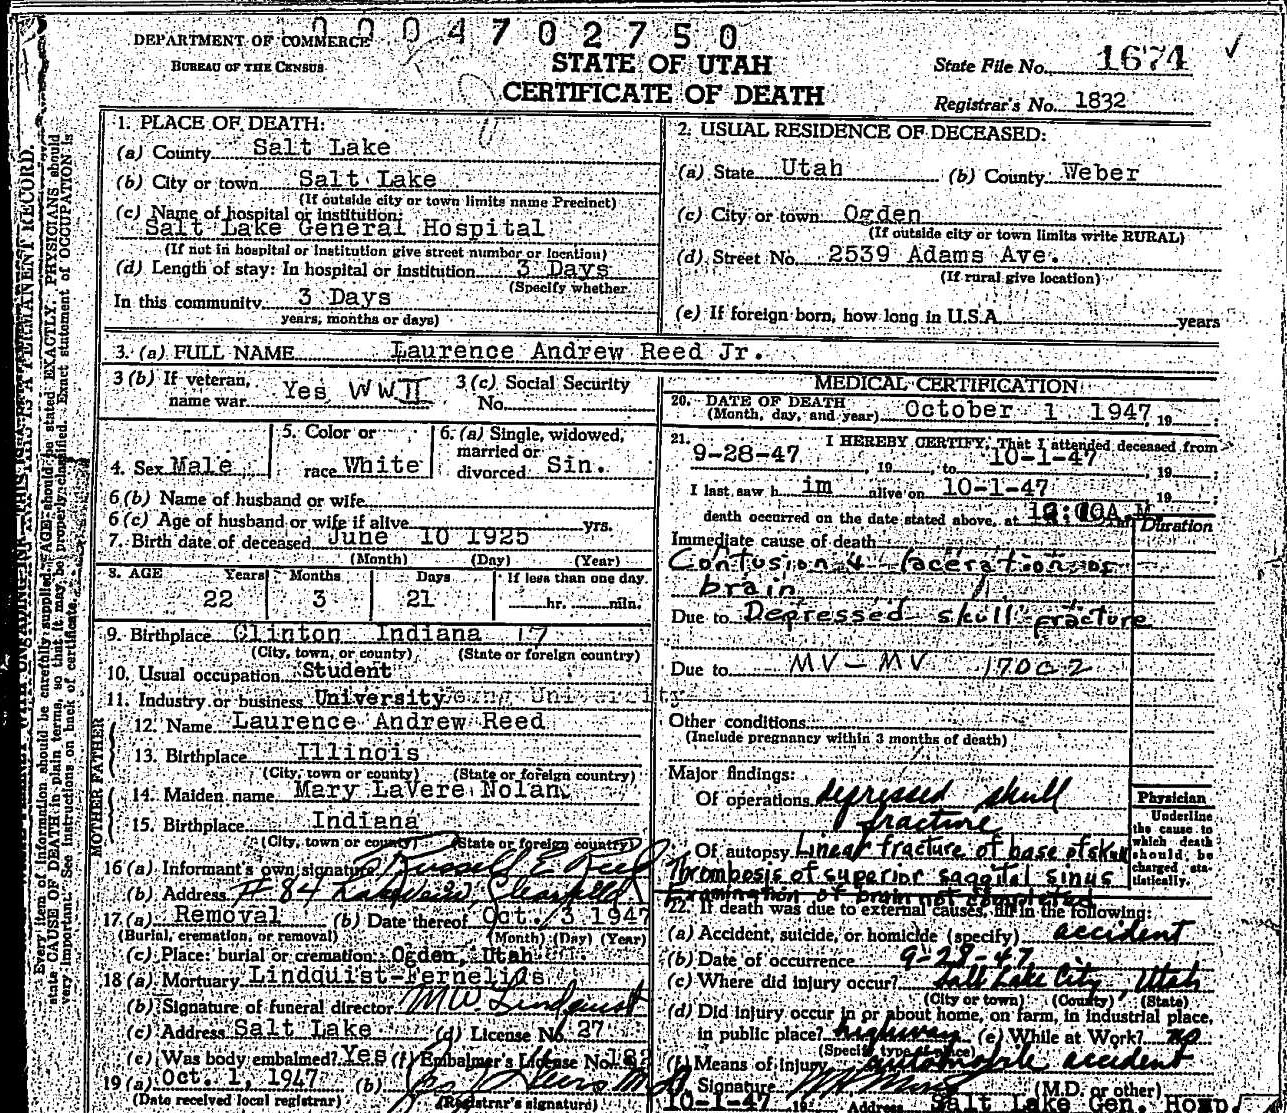 0004702750
DEPARTMENT OF COMMERCE
BUREAU OF THE CENSUS
STATE OF UTAH
CERTIFICATE OF DEATH
State File No. 1674
Registrar's No. 1832
1. PLACE OF DEATH:
(a) County Salt Lake
(b) City or town Salt Lake
(If outside city or town limits name Precinct)
(c) Name of hospital or institution:
Salt Lake General Hospital
(If not in hospital or institution give street number or location)
(d) Length of stay: In hospital or institution 3 Days
(Specify whether
In this community 3 Days
years, months or days)
2. USUAL RESIDENCE OF DECEASED:
(a) State Utah (b) County Weber
(c) City or town Ogden
(If outside city or town limits write RURAL)
(d) Street No. 2539 Adams Ave.
(If rural give location)
(e) If foreign born, how long in U.S.A. years
3. (a) FULL NAME Laurence Andrew Reed Jr.
3 (b) If veteran, name war Yes WW II
3 (c) Social Security No.
4. Sex Male
5. Color or race White
6. (a) Single, widowed, married or divorced Sin.
6 (b) Name of husband or wife
6 (c) Age of husband or wife if alive yrs.
7. Birth date of deceased June 10 1925
(Month) (Day) (Year)
8. AGE Years Months Days If less than one day
22 3 21 hr. min.
9. Birthplace Clinton Indiana 17
(City, town, or county) (State or foreign country)
10. Usual occupation Student
11. Industry or business University
12. Name Laurence Andrew Reed
13. Birthplace Illinois
(City, town or county) (State or foreign country)
14. Maiden name Mary LaVere Nolan
15. Birthplace Indiana
(City, town or county) (State or foreign country)
FATHER
MOTHER
16 (a) Informant's own signature Russell E Reed
(b) Address # 84
17 (a) Removal (b) Date thereof Oct. 3 1947
(Burial, cremation, or removal) (Month) (Day) (Year)
(c) Place: burial or cremation Ogden, Utah
18 (a) Mortuary Lindquist-Fernelius
(b) Signature of funeral director M W Lindquist
(c) Address Salt Lake (d) License No. 27
(e) Was body embalmed? Yes (f) Embalmer's License No.
19 (a) Oct. 1, 1947 (b)
(Date received local registrar) (Registrar's signature)
MEDICAL CERTIFICATION
20. DATE OF DEATH
(Month, day, and year) October 1 1947, 19
21. I HEREBY CERTIFY, That I attended deceased from
9-28-47, 19 , to 10-1-47, 19
I last saw h im alive on 10-1-47, 19
death occurred on the date stated above, at
Duration
Immediate cause of death
Contusion & laceration of
brain
Due to Depressed skull fracture
Due to MV-MV 170c2
Other conditions
(Include pregnancy within 3 months of death)
Major findings:
Of operations depressed skull
fracture
Of autopsy Linear fracture of base of skull
Thrombosis of superior saggital sinus
Examination of brain not completed
Physician
Underline
the cause to
which death
should be
charged sta-
tistically.
22. If death was due to external causes, fill in the following:
(a) Accident, suicide, or homicide (specify) accident
(b) Date of occurrence 9-28-47
(c) Where did injury occur? Salt Lake City, Utah
(City or town) (County) (State)
(d) Did injury occur in or about home, on farm, in industrial place,
in public place? highway (e) While at Work? no
(Specify type of place)
(f) Means of injury automobile accident
Signature
(M.D. or other)
10-1-47 19 Address Salt Lake Gen. Hosp.